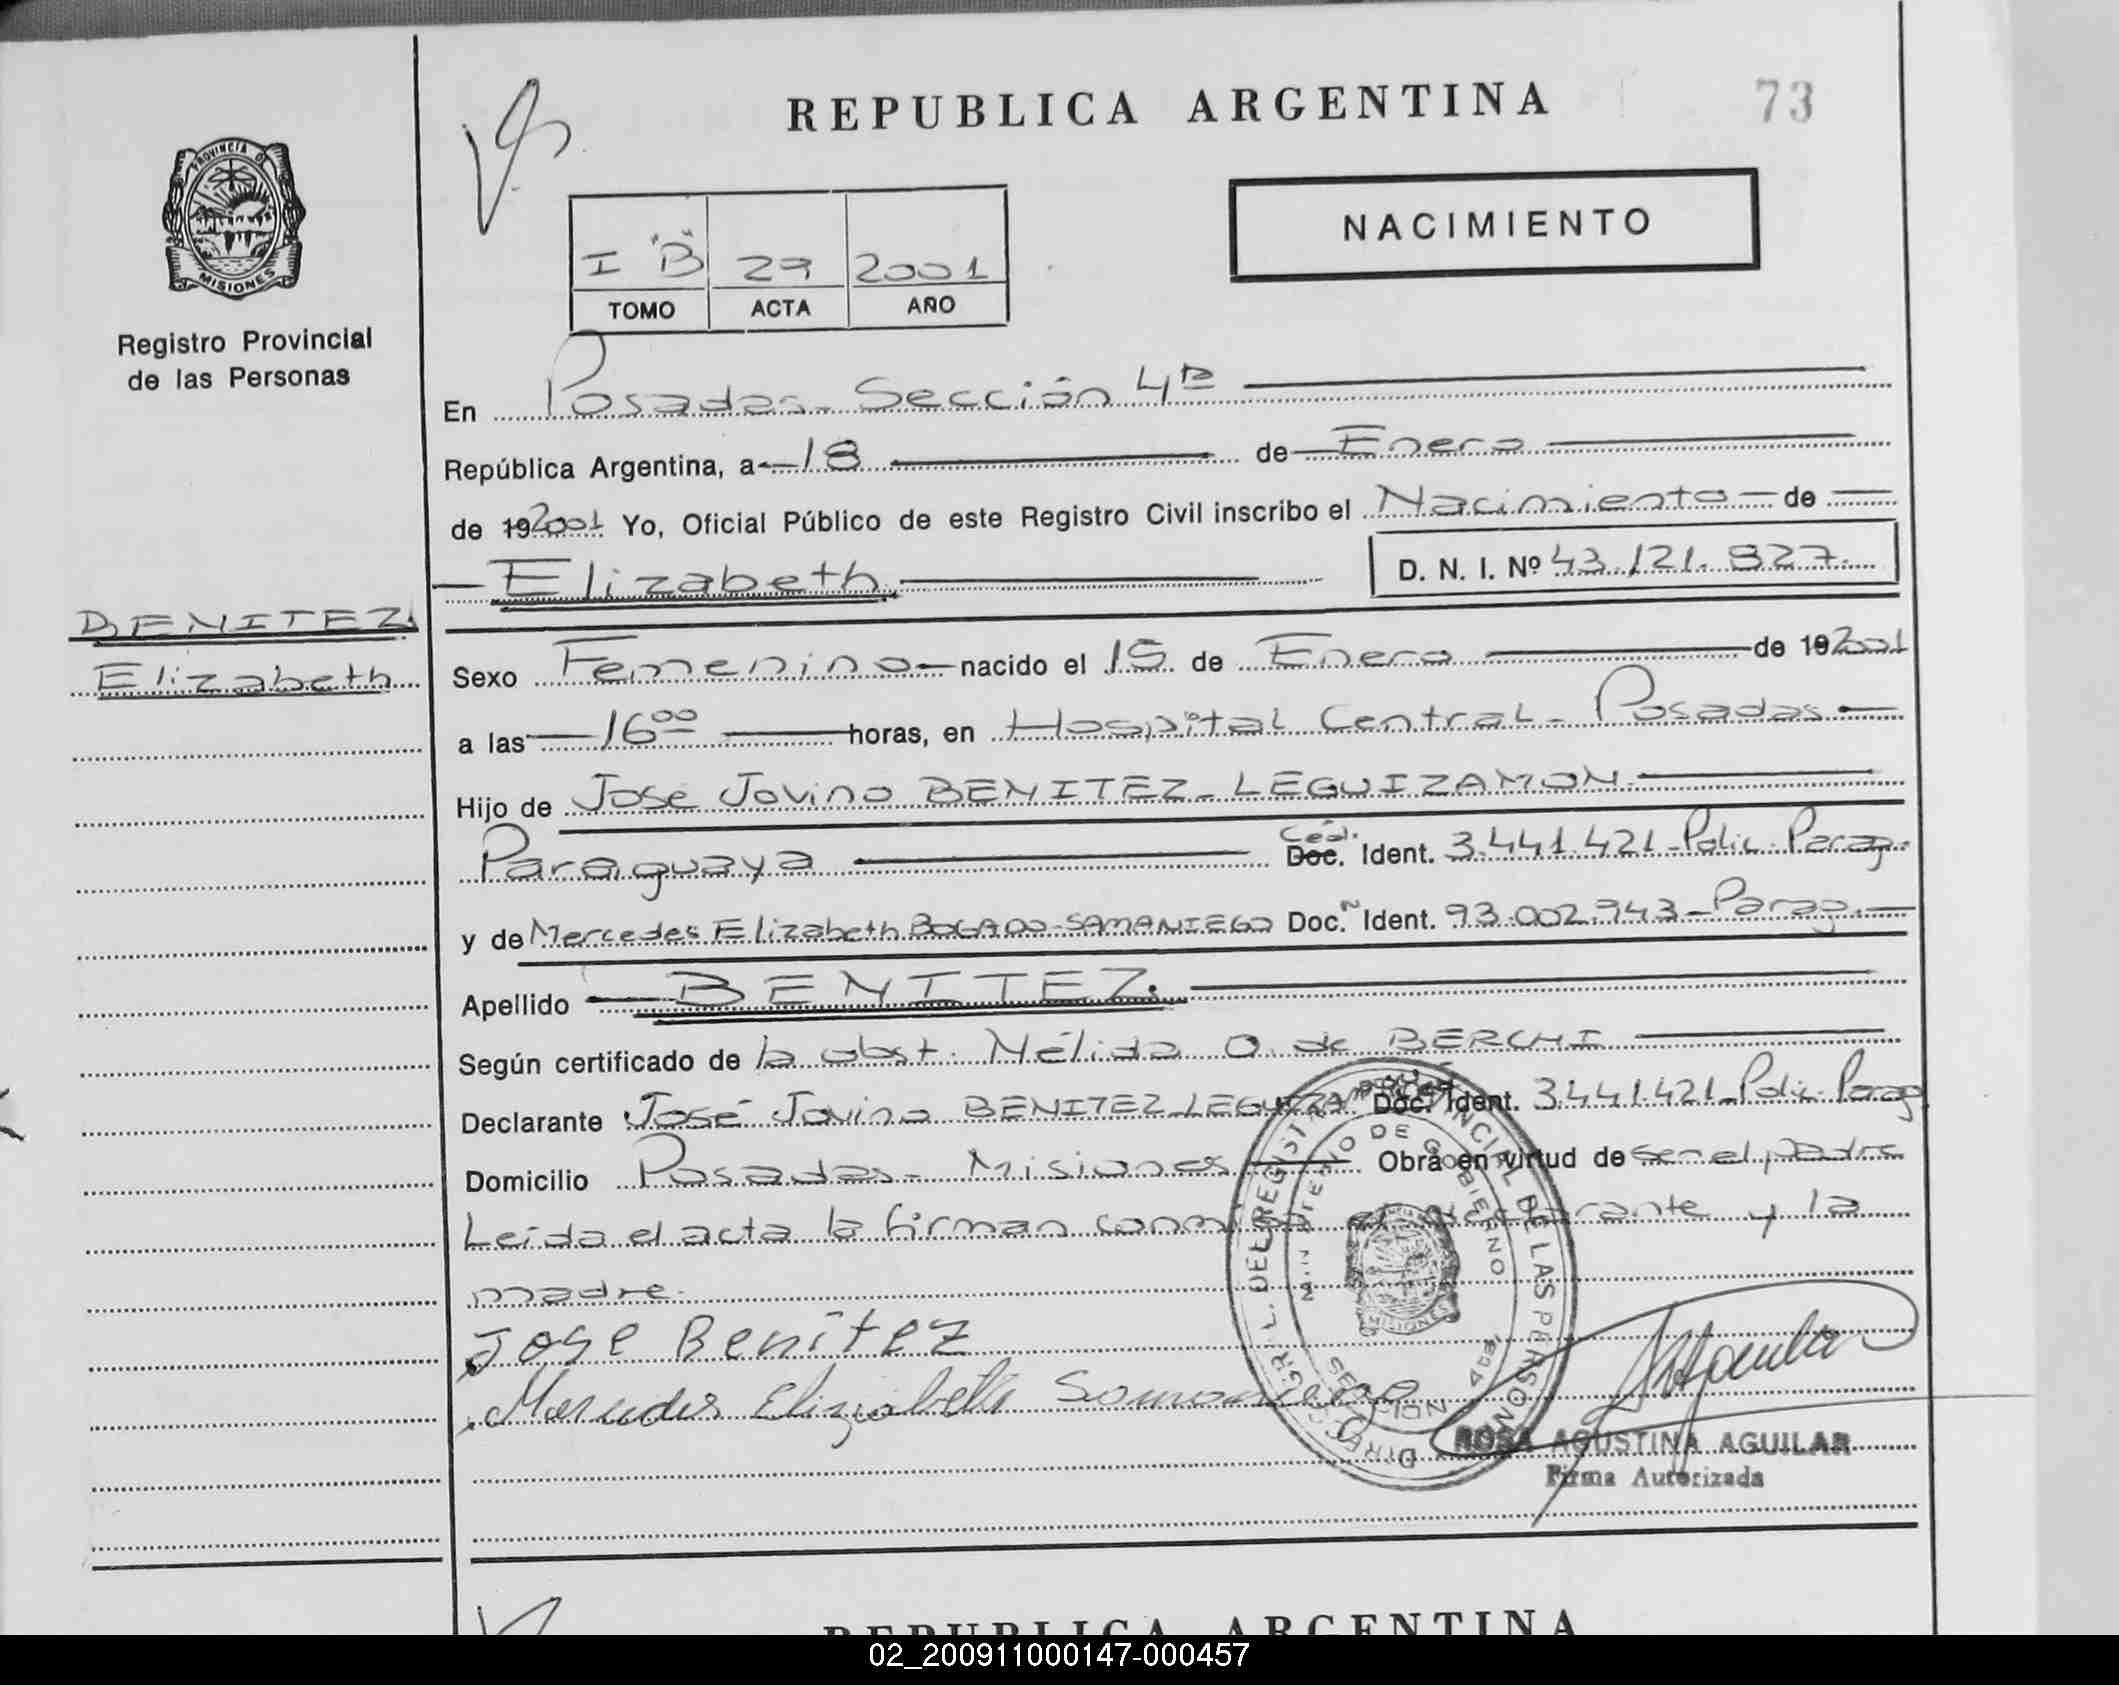 REPUBLICA ARGENTINA
73
PROVINCIA DE
MISIONES
Registro Provincial
de las Personas
NACIMIENTO
I "B" 29 2001
TOMO ACTA AÑO
En Posadas - Sección 4ª
República Argentina, a 18 de Enero
de 19 2001 Yo, Oficial Público de este Registro Civil inscribo el Nacimiento de
Elizabeth D. N. I. Nº 43.121.827.
BENITEZ.
Elizabeth
Sexo Femenino nacido el 15 de Enero de 19 2001
a las 16 00 horas, en Hospital Central - Posadas
Hijo de Jose Jovino BENITEZ - LEGUIZAMON
Paraguaya Céd. Doc. Ident. 3.441.421 - Polic. Parag.
y de Mercedes Elizabeth BOGADO - SAMANIEGO Doc. N Ident. 93.002.943 - Parag.
Apellido BENITEZ.
Según certificado de la obst. Nélida O. de BERCHI
Declarante José Jovino BENITEZ - LEGUIZAMON Doc. Ident. 3.441.421 - Polic. Parag
Domicilio Posadas - Misiones Obra en virtud de ser el padre
Leída el acta la firman conmigo el declarante y la
madre.
Jose Benitez
Mercedes Elizabeth Samaniego
DIRECC. GRL. DEL REGISTRO PROVINCIAL DE LAS PERSONAS
MINISTERIO DE GOBIERNO
MISIONES
SECCION 4ta
ROSA AGUSTINA AGUILAR
Firma Autorizada
REPUBLICA ARGENTINA
02_200911000147-000457